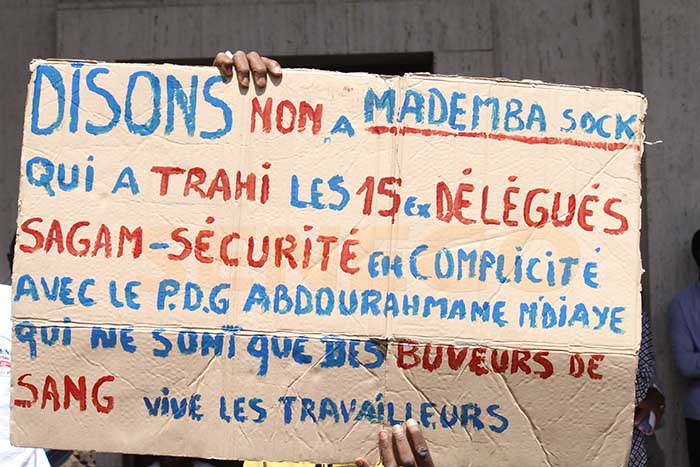 DISONS NON A MADEMBA SOCK
QUI A TRAHI LES 15 ex DÉLÉGUÉS
SAGAM-SÉCURITÉ EN COMPLICITÉ
AVEC LE P.D.G ABDOURAHMANE N'DIAYE
QUI NE SONT QUE DES BUVEURS DE
SANG VIVE LES TRAVAILLEURS